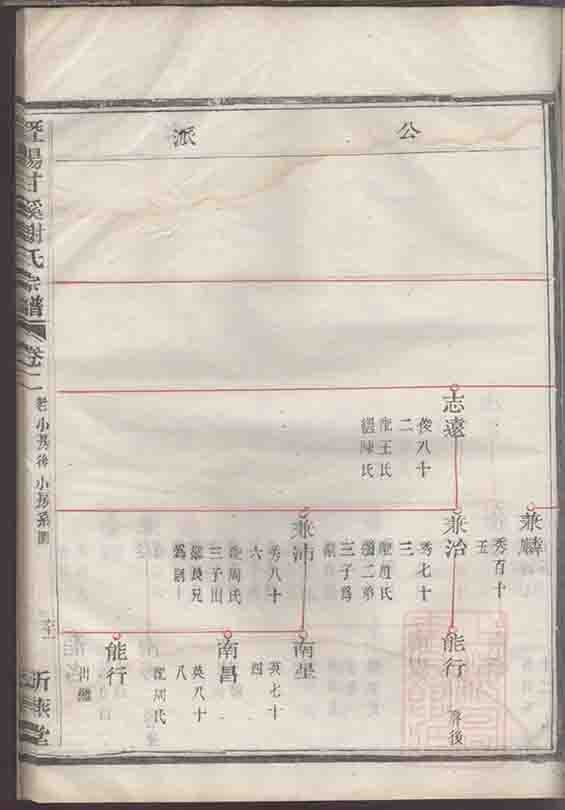 公派
志遠
俊八十
二
配王氏
繼陳氏
兼麟
秀百十
五
兼治
秀七十
三
配趙氏
繼二弟
三子爲
嗣
兼沛
秀八十
六
配周氏
三子出
繼長兄
爲嗣
能行
南星
英七十
四
南昌
英八十
八
配周氏
能行
出繼
甘溪謝氏宗譜
卷二
小房系圖